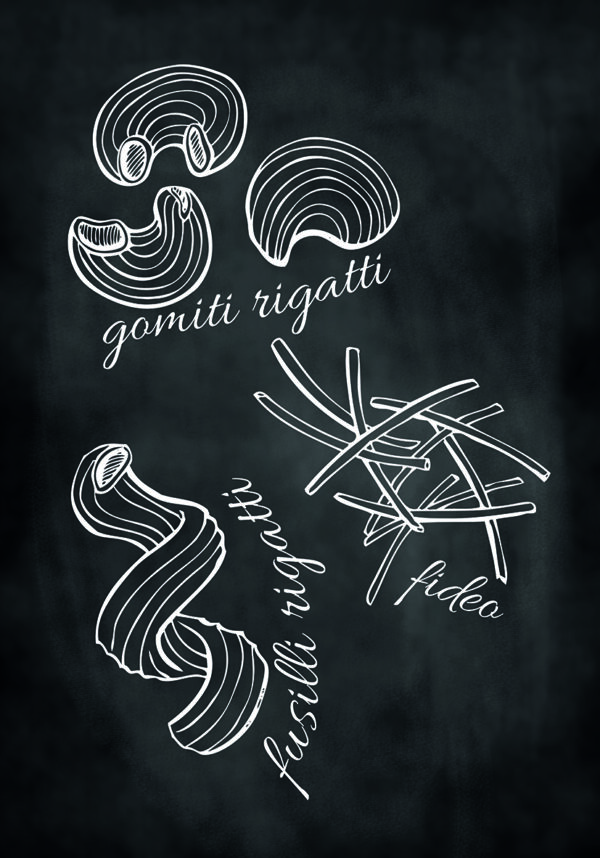 gomiti rigatti
fideo
fusilli rigatti